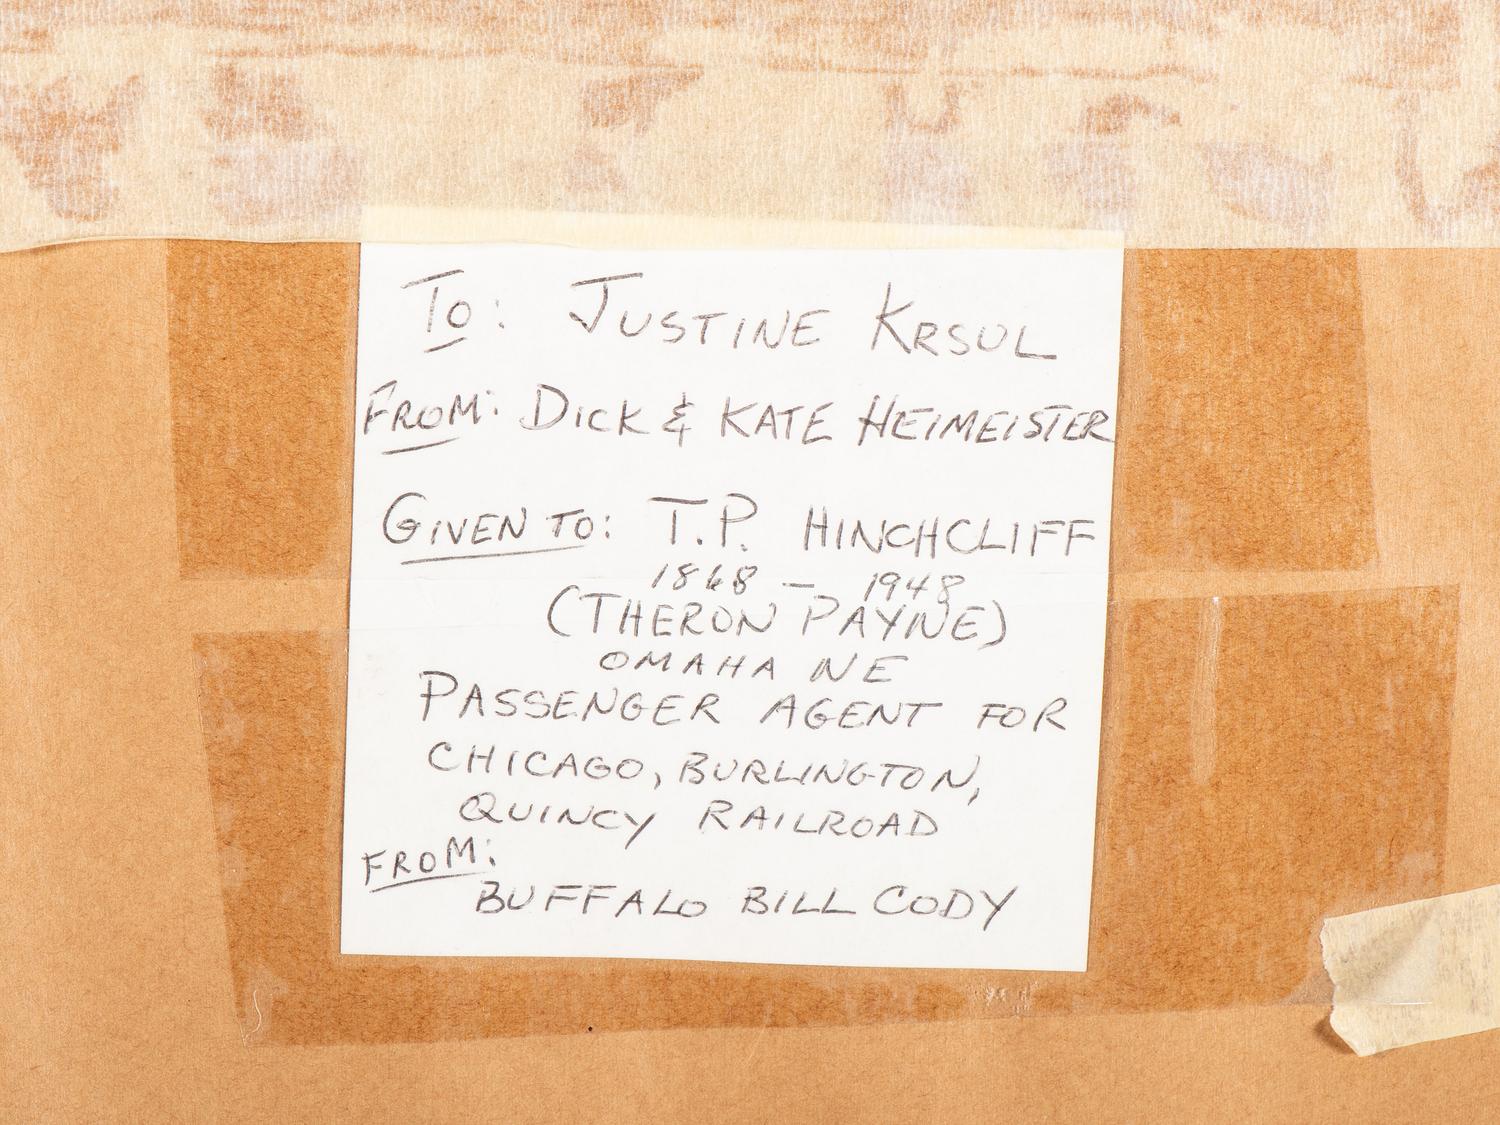 To: JUSTINE KRSUL
FROM: DICK & KATE HEIMEISTER
GIVEN TO: T.P. HINCHCLIFF
1868 – 1948
(THERON PAYNE)
OMAHA NE
PASSENGER AGENT FOR
CHICAGO, BURLINGTON,
QUINCY RAILROAD
FROM:
BUFFALO BILL CODY